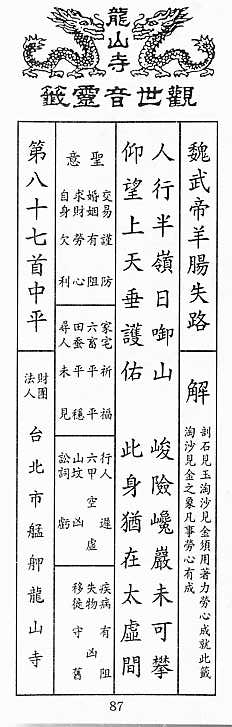 龍山寺
觀世音靈籤
魏武帝羊腸失路
解
剖石見玉淘沙見金須用著力勞心成就此籤
淘沙見金之象凡事勞心有成
人行半嶺日啣山
峻險巉巖未可攀
仰望上天垂護佑
此身猶在太虛間
聖意
交易謹防
婚姻有阻
求財勞心
自身欠利
家宅祈福
六畜平平
田蚕平穩
尋人未見
行人遲
六甲空虛
山墳凶
訟詞虧
疾病有阻
失物凶
移徙守舊
第八十七首中平
財團
法人
台北市艋舺龍山寺
87